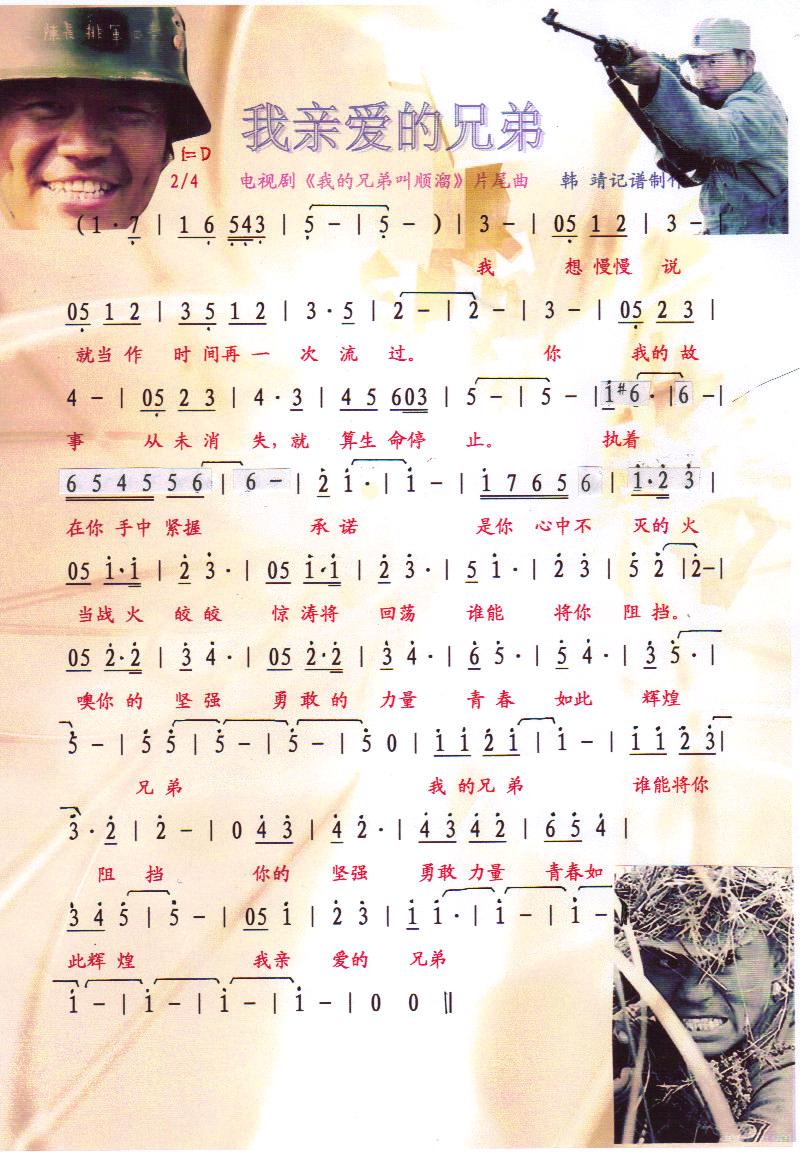 我亲爱的兄弟
1=D
2/4 电视剧《我的兄弟叫顺溜》片尾曲 韩 靖记谱制作
(1·7 | 1 6 543 | 5 – | 5 – ) | 3 – | 05 1 2 | 3 – |
我 想 慢慢 说
05 1 2 | 3 5 1 2 | 3·5 | 2 – | 2 – | 3 – | 05 2 3 |
就当 作 时 间再 一 次 流 过。 你 我的 故
4 – | 05 2 3 | 4·3 | 4 5 603 | 5 – | 5 – | i #6· | 6 – |
事 从 未 消 失，就 算生 命停 止。 执着
6 5 4 5 5 6 | 6 – | 2 i· | i – | i 7 6 5 6 | i·2 3 |
在你 手中 紧握 承 诺 是你 心中不 灭的 火
05 i·i | 2 3· | 05 i·i | 2 3· | 5 i· | 2 3 | 5 2 | 2 – |
当战 火 皎皎 惊 涛将 回荡 谁能 将你 阻 挡。
05 2·2 | 3 4· | 05 2·2 | 3 4· | 6 5· | 5 4· | 3 5· |
噢你 的 坚 强 勇 敢 的 力量 青 春 如此 辉煌
5 – | 5 5 | 5 – | 5 – | 5 0 | i i 2 i | i – | i i 2 3 |
兄 弟 我 的兄 弟 谁能将你
3·2 | 2 – | 0 4 3 | 4 2· | 4 3 4 2 | 6 5 4 |
阻 挡 你的 坚强 勇敢 力量 青春如
3 4 5 | 5 – | 05 i | 2 3 | i i· | i – | i –
此辉 煌 我亲 爱的 兄弟
i – | i – | i – | i – | 0 0 ‖